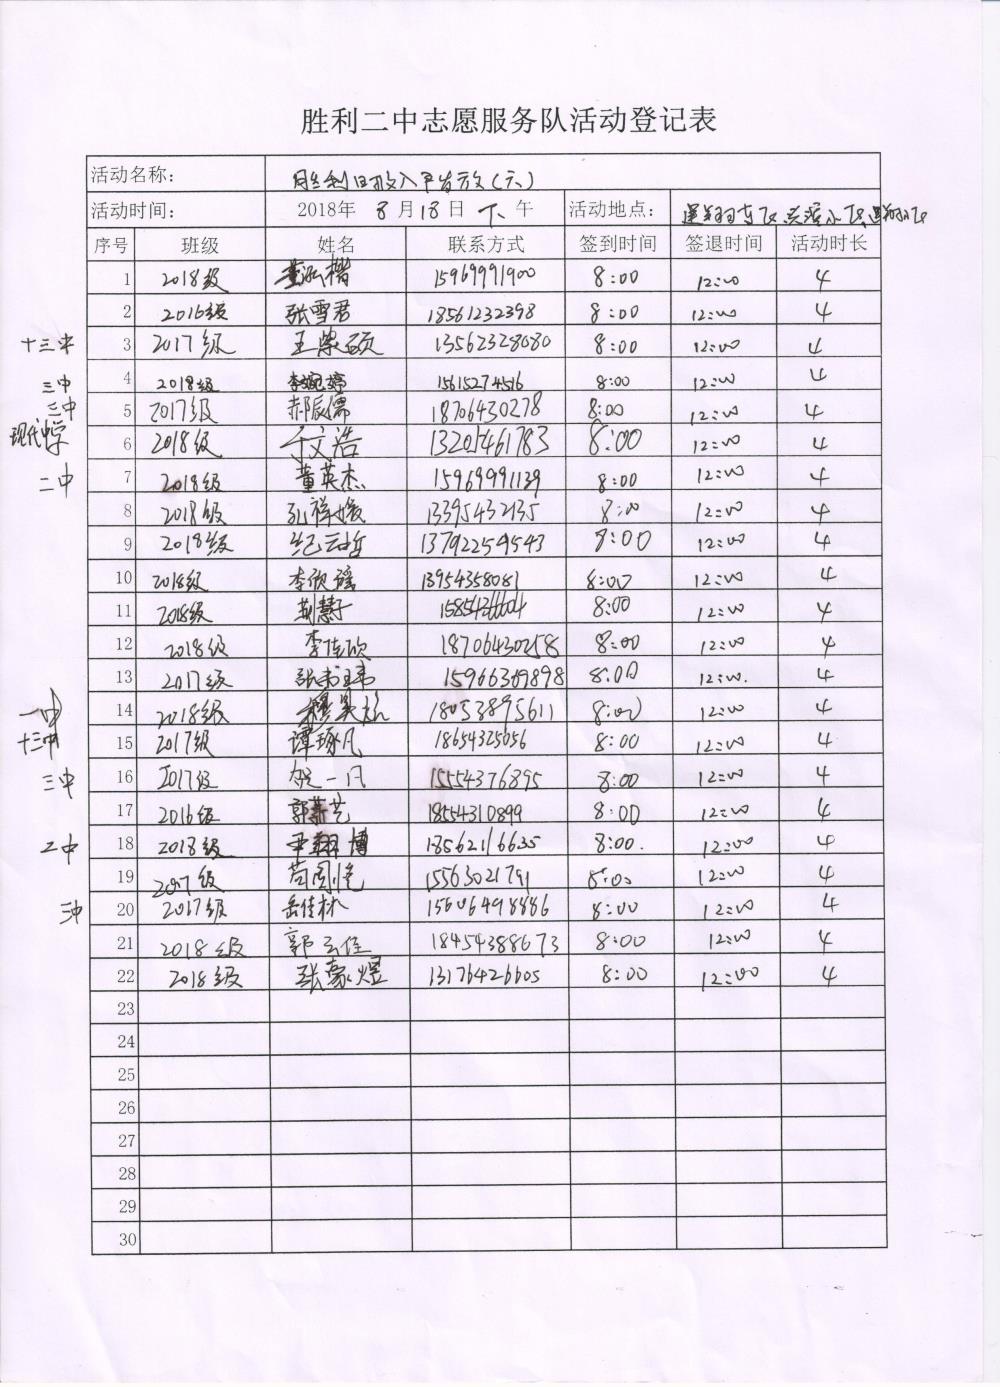 胜利二中志愿服务队活动登记表
活动名称： 胜利日报入户发放(六)
活动时间： 2018年 8月18日 下午 活动地点：
序号 班级 姓名 联系方式 签到时间 签退时间 活动时长
1 2018级 15969991900 8:00 12:00 4
2 2016级 张雪君 18561232398 8:00 12:00 4
十三中 3 2017级 13562328080 8:00 12:00 4
三中 4 2018级 李婉婷 15615274516 8:00 12:00 4
三中 5 2017级 郝辰儒 18706430278 8:00 12:00 4
现代中学 6 2018级 于文浩 13201461783 8:00 12:00 4
二中 7 2018级 董英杰 15969991139 8:00 12:00 4
8 2018级 孔祥媛 13395432135 8:00 12:00 4
9 2018级 纪云哲 13792259543 8:00 12:00 4
10 2018级 李欣瑶 13954358081 8:00 12:00 4
11 2018级 荆慧子 8:00 12:00 4
12 2018级 李佳欣 18706430258 8:00 12:00 4
13 2017级 张书玮 15966309898 8:00 12:00. 4
一中 14 2018级 18053895611 8:00 12:00 4
十三中 15 2017级 谭琢凡 18654325056 8:00 12:00 4
三中 16 2017级 一凡 15554376895 8:00 12:00 4
17 2016级 郭芸艺 18554310899 8:00 12:00 4
二中 18 2018级 尹翔博 18562116635 8:00. 12:00 4
19 2017级 苟国恒 15563021791 8:00 12:00 4
三中 20 2017级 岳佳林 15606498886 8:00 12:00 4
21 2018级 郭云佳 18454388673 8:00 12:00 4
22 2018级 张豪煜 13176426605 8:00 12:00 4
23
24
25
26
27
28
29
30